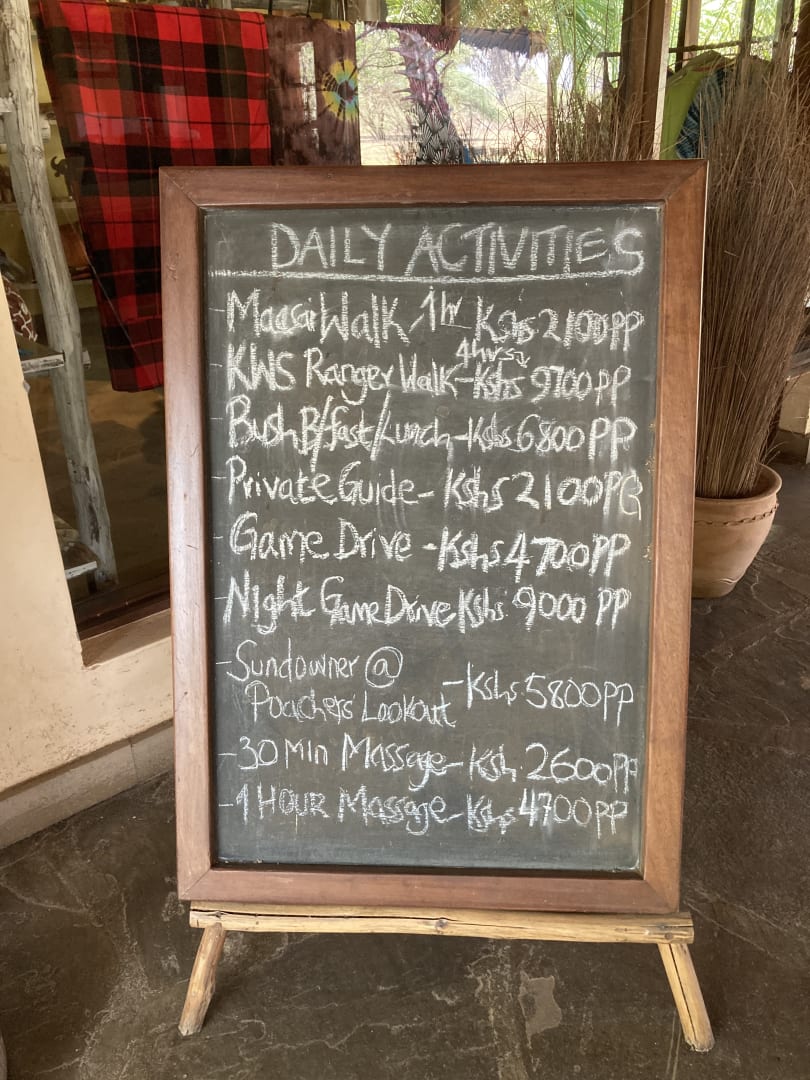 DAILY ACTIVITIES
- Maasai Walk, 1hr Kshs 2100PP
- KWS Ranger Walk - 4hrs, Kshs 9700PP
- Bush B/fast/Lunch - Kshs 6800PP
- Private Guide - Kshs 2100PG
- Game Drive - Kshs 4700PP
- Night Game Drive Kshs. 9000 PP
- Sundowner @
Poachers' Lookout - Kshs 5800PP
- 30 Min Massage - Ksh. 2600PP
- 1 HOUR Massage - Kshs 4700PP